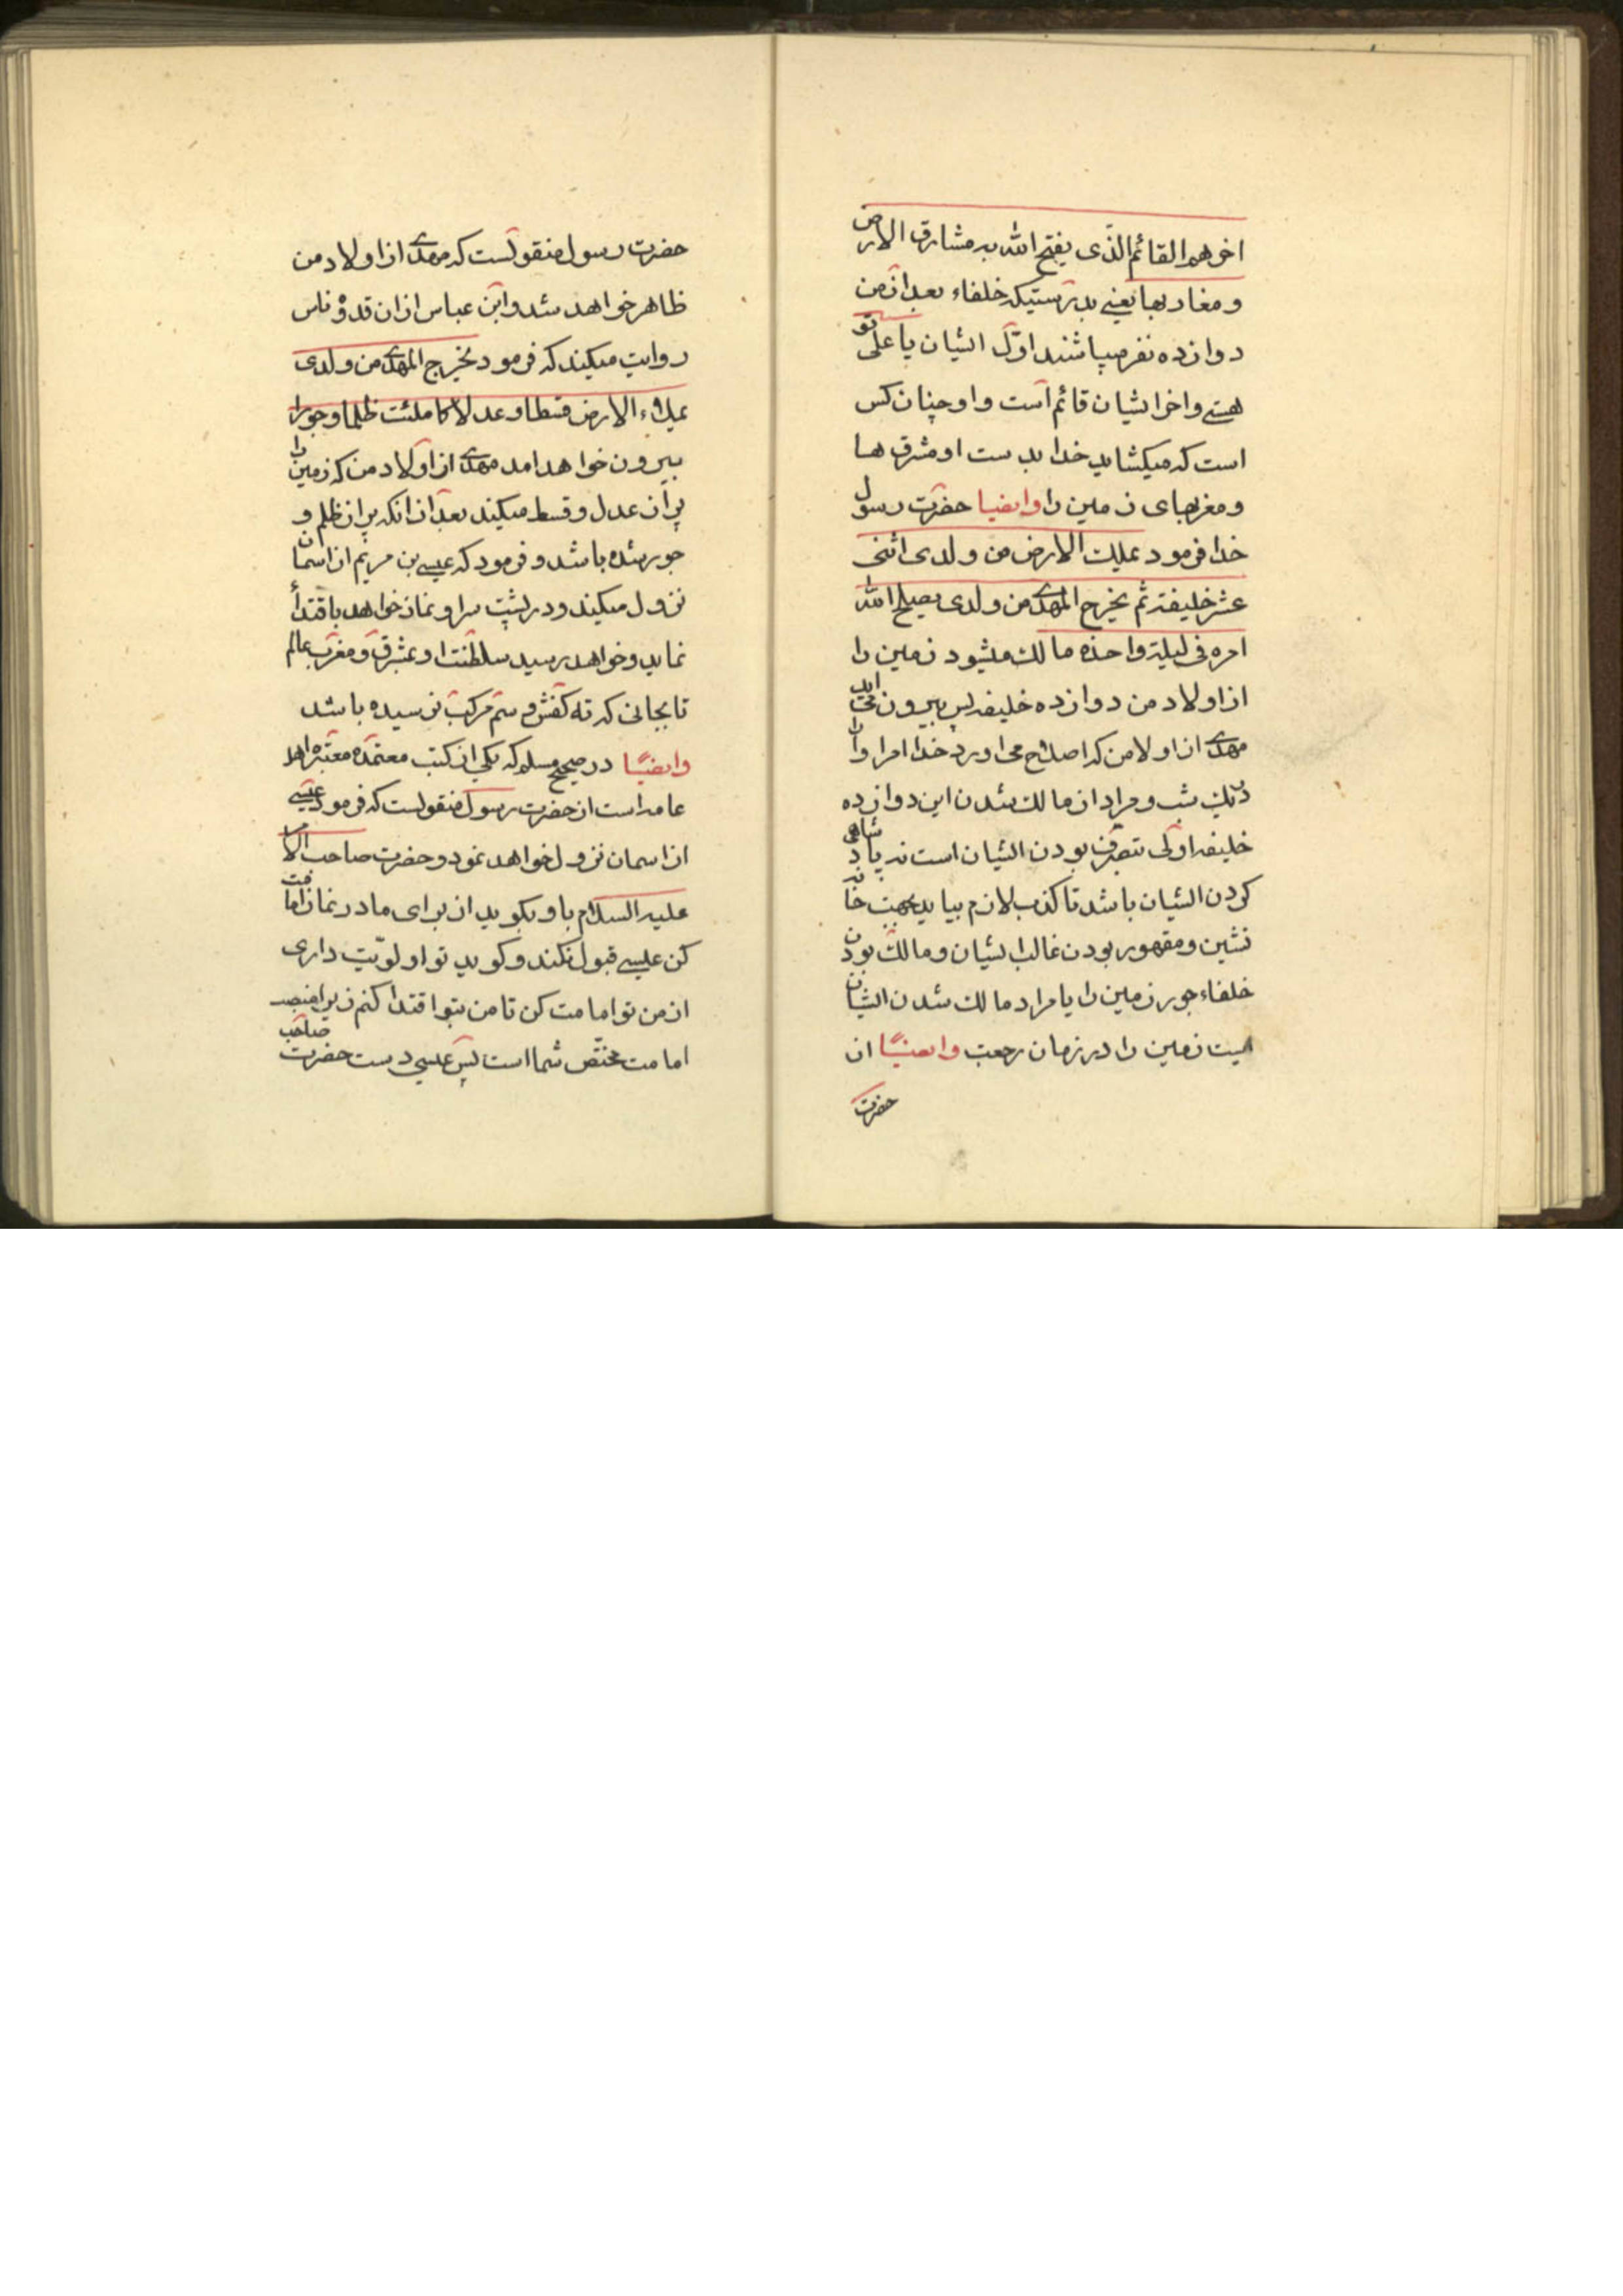 اخرهم القائم الذی یفتح الله به مشارق الارض
و مغاربها یعنی بدرستیکه خلفاء بعد از من
دوازده نفر میباشند اوّل ایشان یا علی تو
هستی و اخر ایشان قائم است و او چنان کس
است که میکشاید خدا بدست او مشرق ها
و مغربهای زمین را وایضا حضرت رسول
خدا فرمود یملک الارض من ولدی اثنی
عشر خلیفة ثم یخرج المهدی من ولدی یصلح الله
امره فی لیلة واحده مالک میشود زمین را
از اولاد من دوازده خلیفه پس بیرون می اید
مهدی از اولا من که اصلاح می اورد خدا امر او را
دریک شب و مراد از مالک شدن این دوازده
خلیفه اولی بتصرف بودن ایشان است نه پادشاهی
کردن ایشان باشد تا کذب لازم بیاید بجهت خانه
نشین و مقهور بودن غالب ایشان و مالک بودن
خلفاء جور زمین را یا مراد مالک شدن ایشان
است زمین را در زمان رجعت وایضًا از
حضرت
حضرت رسول منقولست که مهدی از اولاد من
ظاهر خواهد شد و ابن عباس از ان قدوۀ ناس
روایت میکند که فرمود یخرج المهدی من ولدی
یملاء الارض قسطا و عدلا کا ملئت ظلما و جورا
بیرون خواهد امد مهدی از اولاد من که زمین را
پر از عدل و قسط میکند بعد از انکه پر از ظلم و
جور شده باشد و فرمود که عیسی بن مریم از اسمان
نزول میکند و در پشت سر او نماز خواهد باقتدأ
نماید و خواهد رسید سلطنت او بمشرق و مغرب عالم
تا بجائی که ته کفش و سم مرکب نرسیده باشد
وایضًا در صحیح مسلم که یکی از کتب معتمده معتبره اهل
عامه است از حضرت رسول منقولست که فرمود عیسی
از اسمان نزول خواهد نمود و حضرت صاحب الامر
علیه السلام باو بکوید از برای ما در نماز امامت
کن عیسی قبول نکند و کوید تو اولویّت داری
از من تو امامت کن تا من بتو اقتدا کنم زیرا منصب
امامت مختصّ شما است پس عیسی دست حضرت صاحب